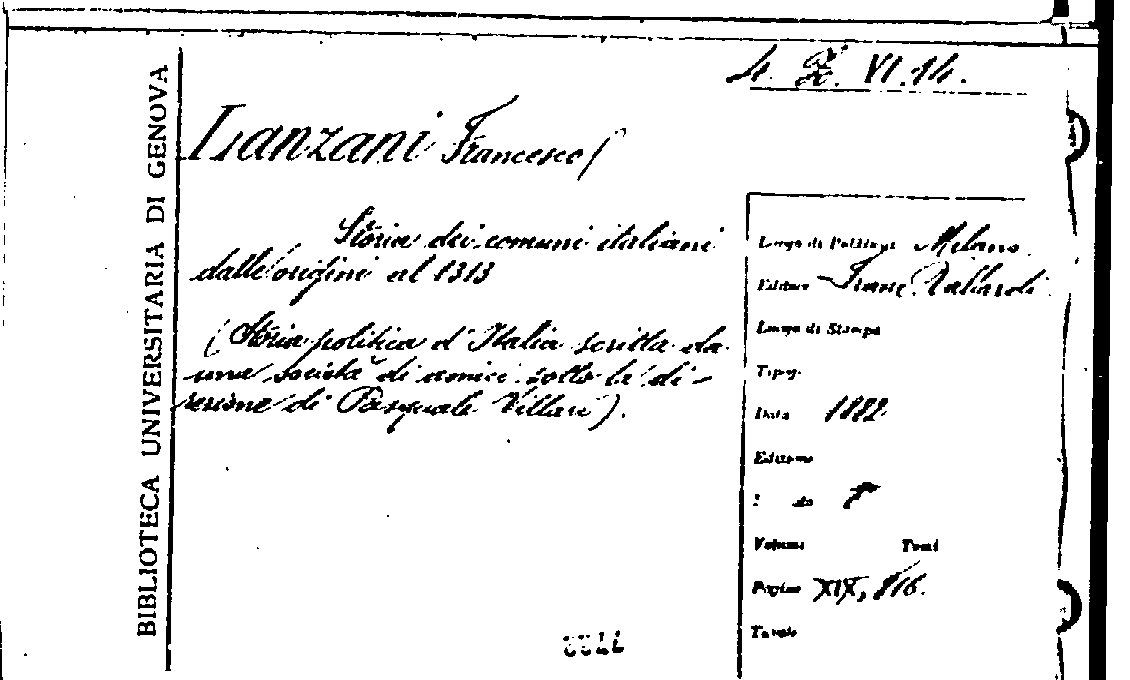 4. Z. VI. 14.
BIBLIOTECA UNIVERSITARIA DI GENOVA
Lanzani Francesco
Storia dei comuni italiani
dalle origini al 1313
(Storia politica d'Italia scritta da
una società di amici sotto la di-
rezione di Pasquale Villari).
Luogo di Pubblicaz. Milano
Editore Franc. Vallardi
Luogo di Stampa
Tipogr.
Data 1882
Edizione
in 8°
Volume Tomi
Pagine XIX, 816.
Tavole